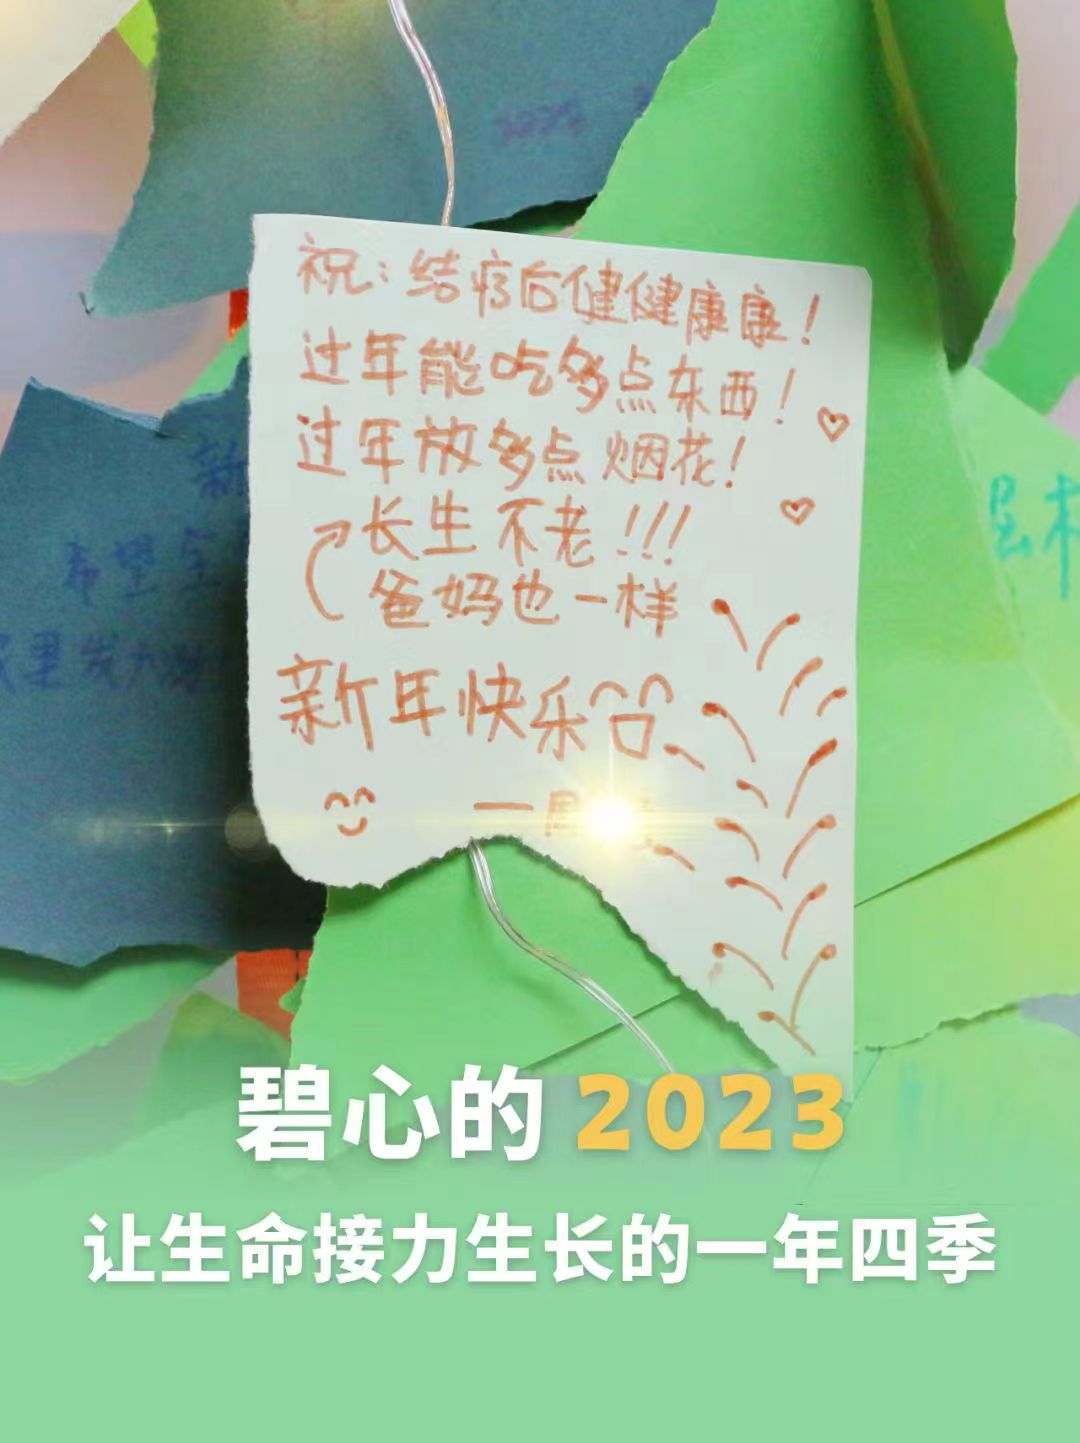 祝：结疗后健健康康！
过年能吃多点东西！
过年放多点烟花！
长生不老！！！
爸妈也一样
新年快乐
新
希望
层
碧心的 2023
让生命接力生长的一年四季